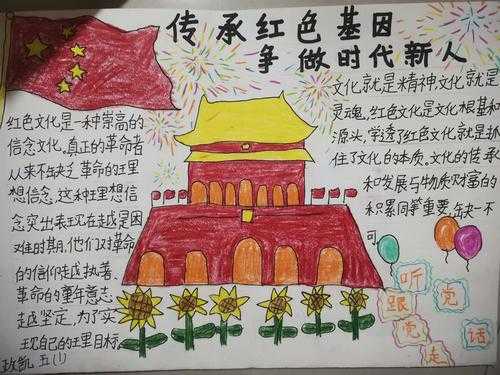 传承红色基因
争做时代新人
红色文化是一种崇高的
信念文化。真正的革命者
从来不缺乏革命的理
想信念,这种理想信
念突出表现在越是困
难时期,他们对革命
的信仰越执著、
革命的意志
越坚定,为了实
现自己的理目标
文化就是精神,文化就是
灵魂,红色文化是文化根基和
源头,学透了红色文化就是抓
住了文化的本质,文化的传承
和发展与物质财富的
积累同等重要,缺一不
可
听党话
跟党走
五(1)